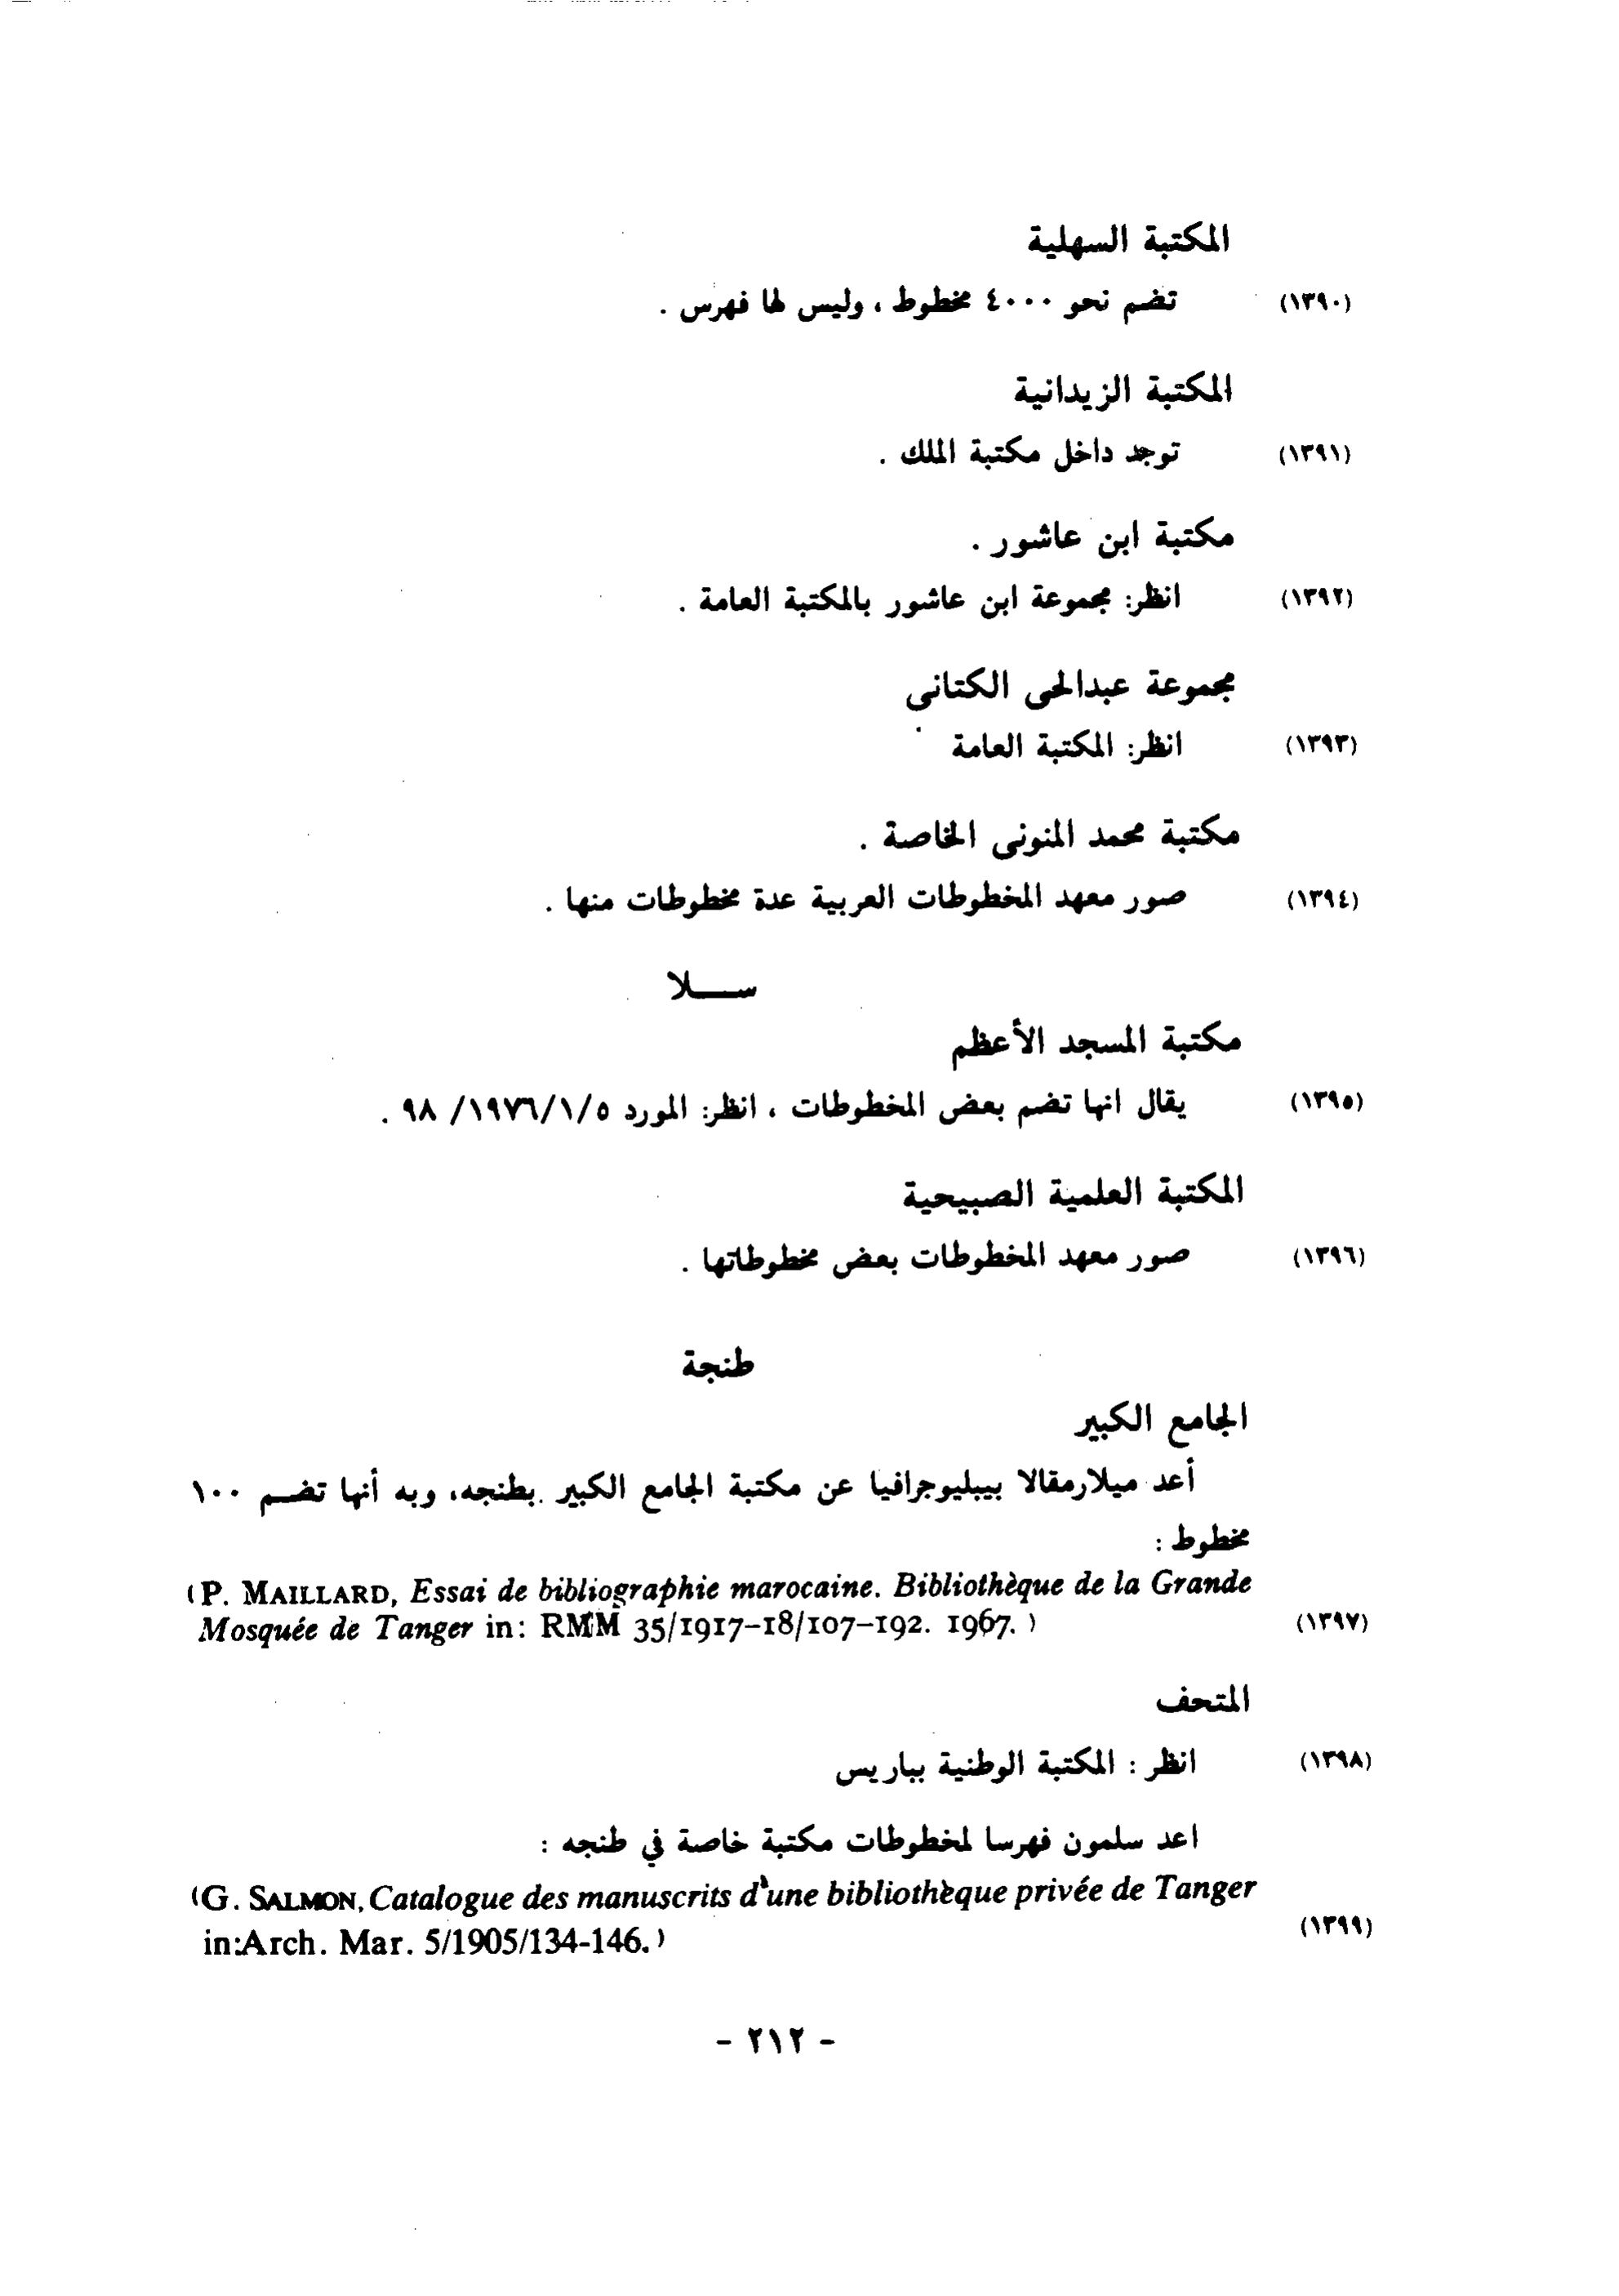 المكتبة السهلية
(١٣٩٠) تضم نحو ٤٠٠٠ مخطوط ، وليس لها فهرس .
المكتبة الزيدانية
(١٣٩١) توجد داخل مكتبة الملك .
مكتبة ابن عاشور .
(١٣٩٢) انظر: مجموعة ابن عاشور بالمكتبة العامة .
مجموعة عبدالحى الكتانى
(١٣٩٣) انظر: المكتبة العامة
مكتبة محمد المنونى الخاصة .
(١٣٩٤) صور معهد المخطوطات العربية عدة مخطوطات منها .
ســلا
مكتبة المسجد الأعظم
(١٣٩٥) يقال انها تضم بعض المخطوطات ، انظر: المورد ١٩٧٦/١/٥/ ٩٨ .
المكتبة العلمية الصبيحية
(١٣٩٦) صور معهد المخطوطات بعض مخطوطاتها .
طنجة
الجامع الكبير
أعد ميلارمقالا بيبليوجرافيا عن مكتبة الجامع الكبير بطنجه، وبه أنها تضـم ١٠٠
مخطوط :
(P. MAILLARD, Essai de bibliographie marocaine. Bibliothèque de la Grande
Mosquée de Tanger in: RMM 35/1917–18/107–192. 1967.) (١٣٩٧)
المتحف
(١٣٩٨) انظر : المكتبة الوطنية بباريس
اعد سلمون فهرسا لمخطوطات مكتبة خاصة في طنجه :
(G. SALMON, Catalogue des manuscrits d'une bibliothèque privée de Tanger
in:Arch. Mar. 5/1905/134-146.) (١٣٩٩)
- ٢١٢ -